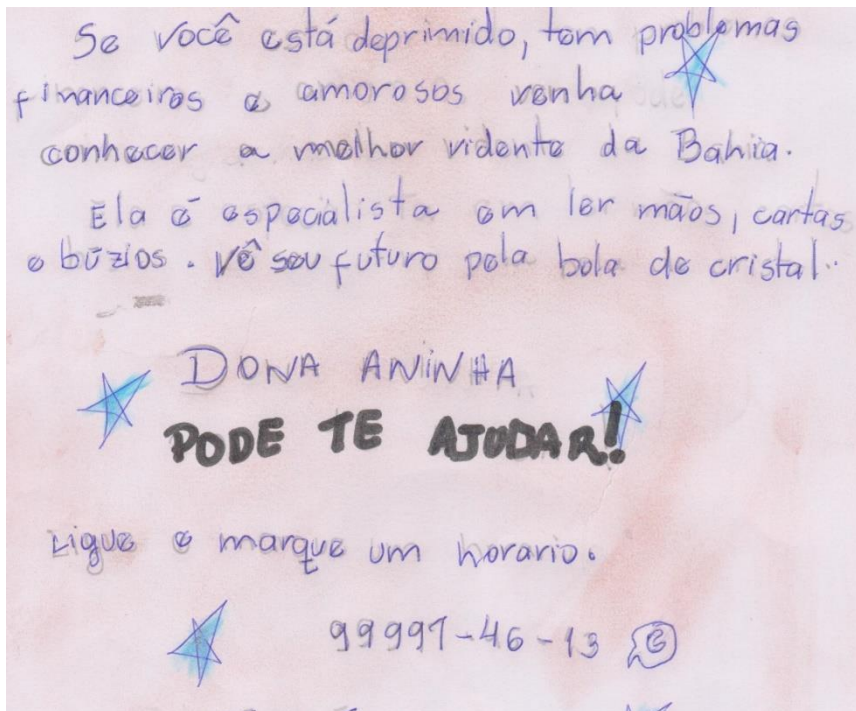 Se você está deprimido, tem problemas
financeiros e amorosos venha
conhecer a melhor vidente da Bahia.
Ela é especialista em ler mãos, cartas
e búzios. Vê seu futuro pela bola de cristal..
DONA ANINHA
PODE TE AJUDAR!
Ligue e marque um horario.
99991-46-13